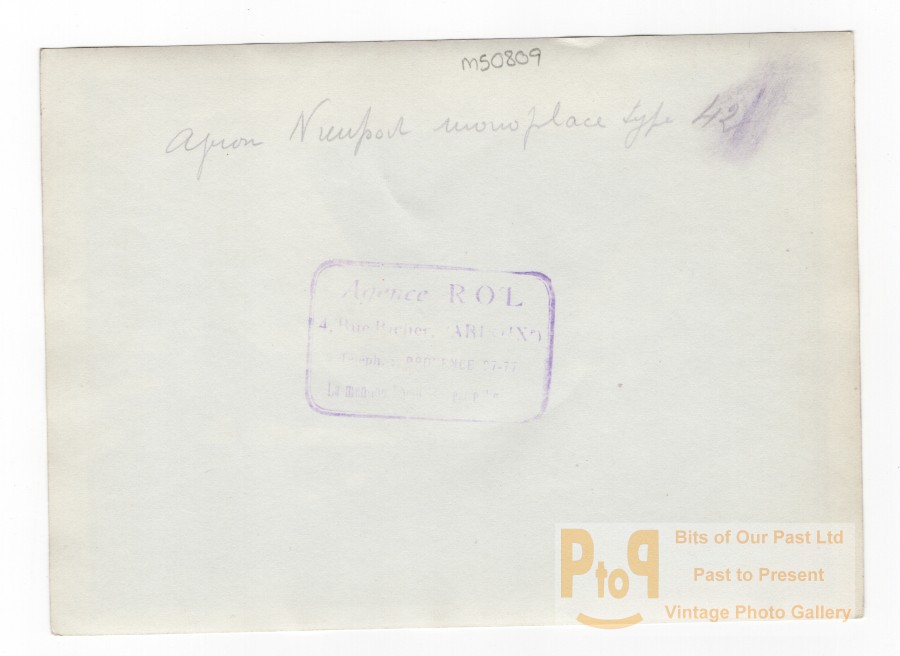 m50809
avion Nieuport monoplace type 42
Agence ROL
4, Rue Richer, PARIS (IX)
Téléph. : PROVENCE
PtoP
Bits of Our Past Ltd
Past to Present
Vintage Photo Gallery